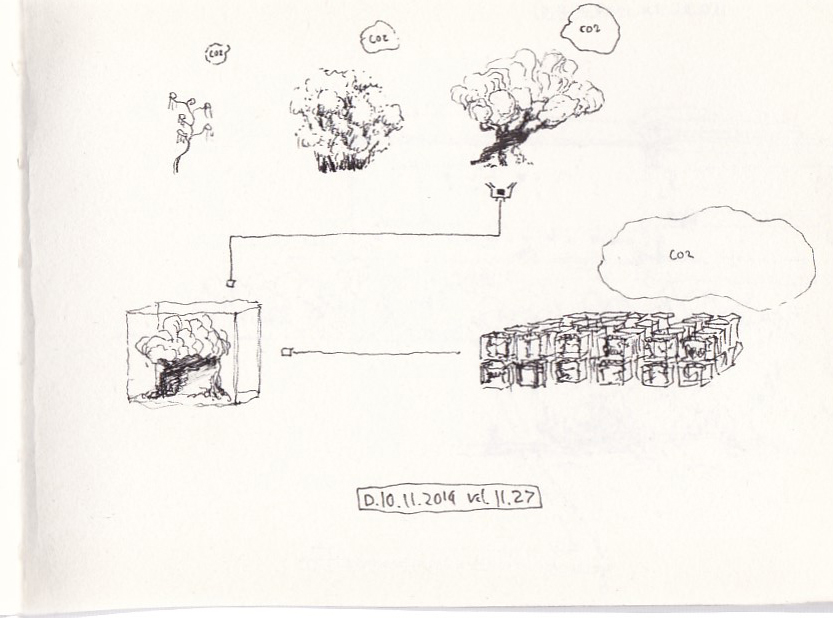 CO2
CO2
CO2
CO2
D.10.11.2019 kl. 11.27